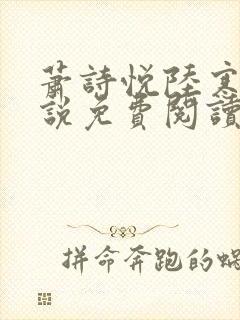 蕭詩悅陸寒
說免費閱讀
拼命奔跑的蝸